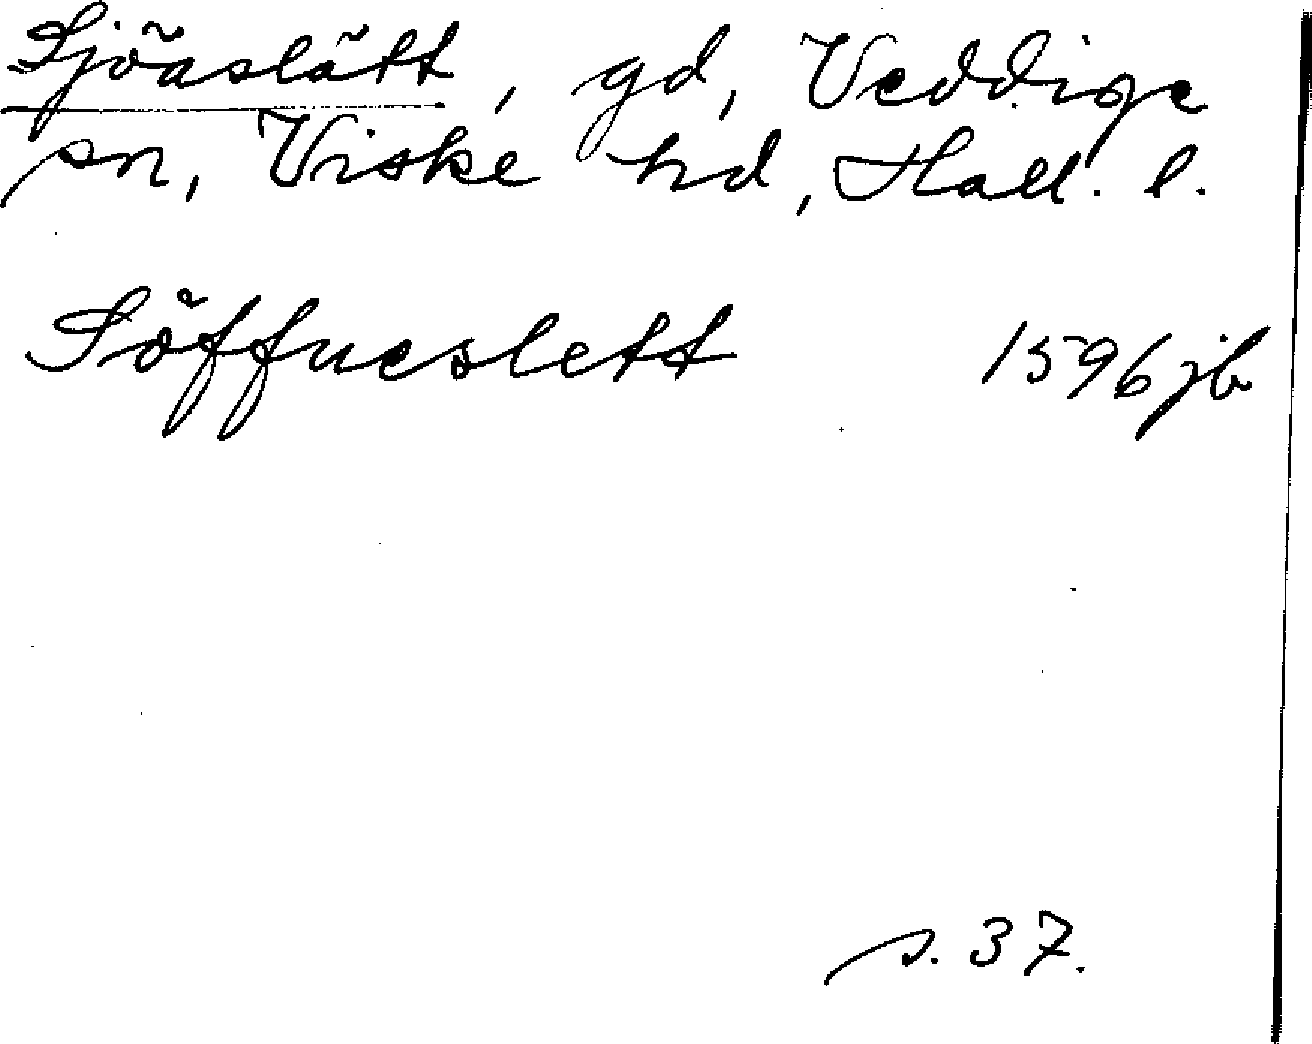 Sjöaslätt, gd, Veddige
sn, Viske hd, Hall. l.
Söffueslett 1596 jb
s. 37.